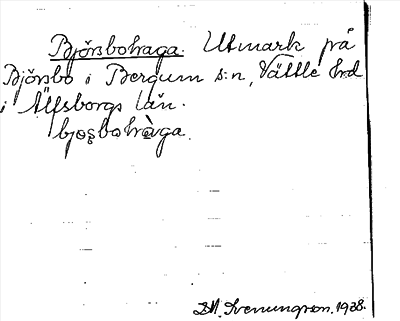 Björsbohaga. Utmark på
Björsbo i Bergum s:n, Vättle hrd
i Älfsborgs län.
bjosbohàga.
D.N. Svenungsson. 1938.